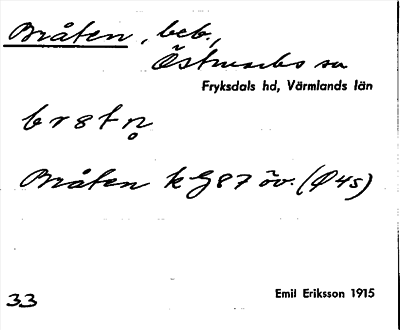 Bråten, beb.,
Östmarks sn
Fryksdals hd, Värmlands län
Bråten k G87 öv. (Ö4s)
Emil Eriksson 1915
33